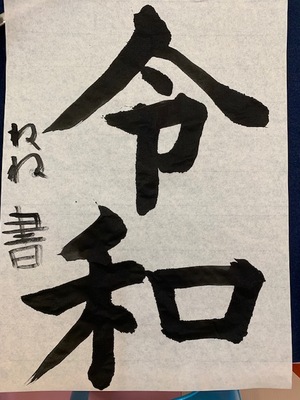 令和
ねね書